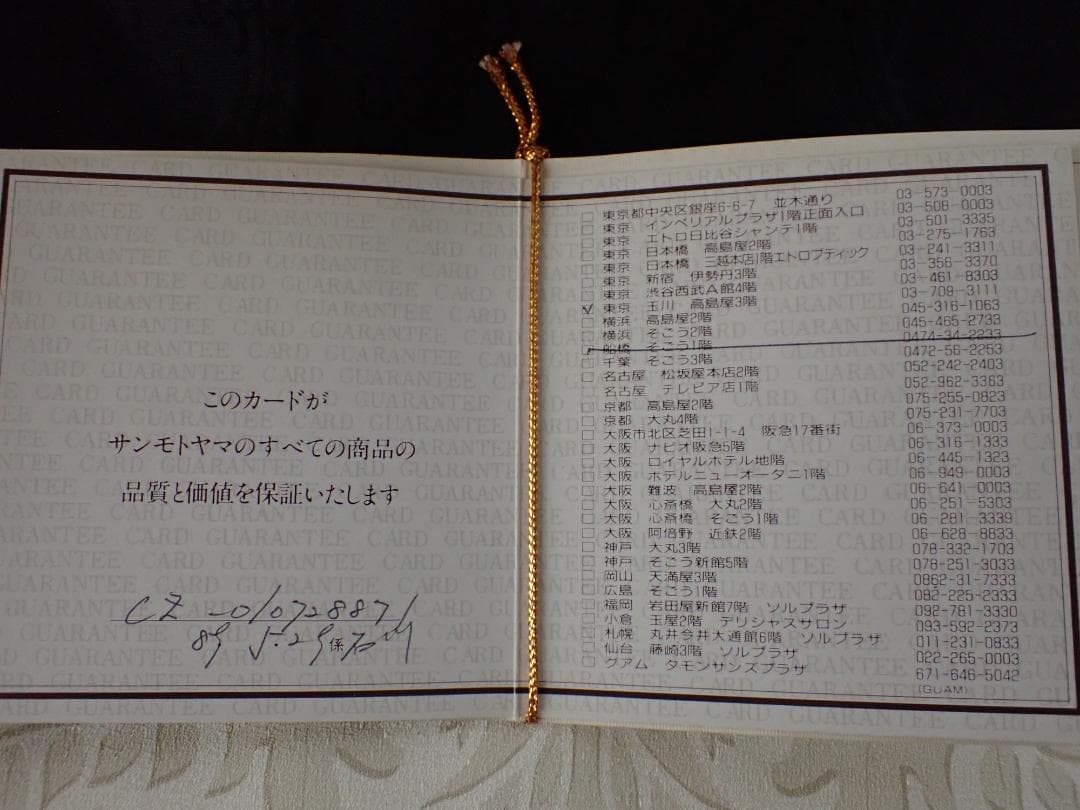 このカードが
サンモトヤマのすべての商品の
品質と価値を保証いたします
CZ-01072887/
89 5.29 係 石川
東京都中央区銀座6-6-7 並木通り 03-573-0003
東京 インペリアルプラザ1階正面入口 03-508-0003
東京 エトロ日比谷シャンテ1階 03-501-3335
東京 日本橋 高島屋2階 03-275-1763
東京 日本橋 三越本店1階エトロブティック 03-241-3311
東京 新宿 伊勢丹3階 03-356-3370
東京 渋谷西武A館4階 03-461-8303
東京 玉川 高島屋3階 03-709-3111
横浜 高島屋2階 045-316-1063
横浜 そごう2階 045-465-2733
船橋 そごう1階 0474-34-2233
千葉 そごう3階 0472-56-2253
名古屋 松坂屋本店2階 052-242-2403
名古屋 テレピア店1階 052-962-3363
京都 高島屋2階 075-255-0823
京都 大丸4階 075-231-7703
大阪市北区芝田1-1-4 阪急17番街 06-373-0003
大阪 ナビオ阪急5階 06-316-1333
大阪 ロイヤルホテル地階 06-445-1323
大阪 ホテルニューオータニ1階 06-949-0003
大阪 難波 高島屋2階 06-641-0003
大阪 心斎橋 大丸2階 06-251-5303
大阪 心斎橋 そごう1階 06-281-3339
大阪 阿倍野 近鉄2階 06-628-8833
神戸 大丸3階 078-332-1703
神戸 そごう新館5階 078-251-3033
岡山 天満屋3階 0862-31-7333
広島 そごう1階 082-225-2333
福岡 岩田屋新館7階 ソルプラザ 092-781-3330
小倉 玉屋2階 デリシャスサロン 093-592-2373
札幌 丸井今井大通館6階 ソルプラザ 011-231-0833
仙台 藤崎3階 ソルプラザ 022-265-0003
グアム タモンサンズプラザ 671-646-5042
(GUAM)